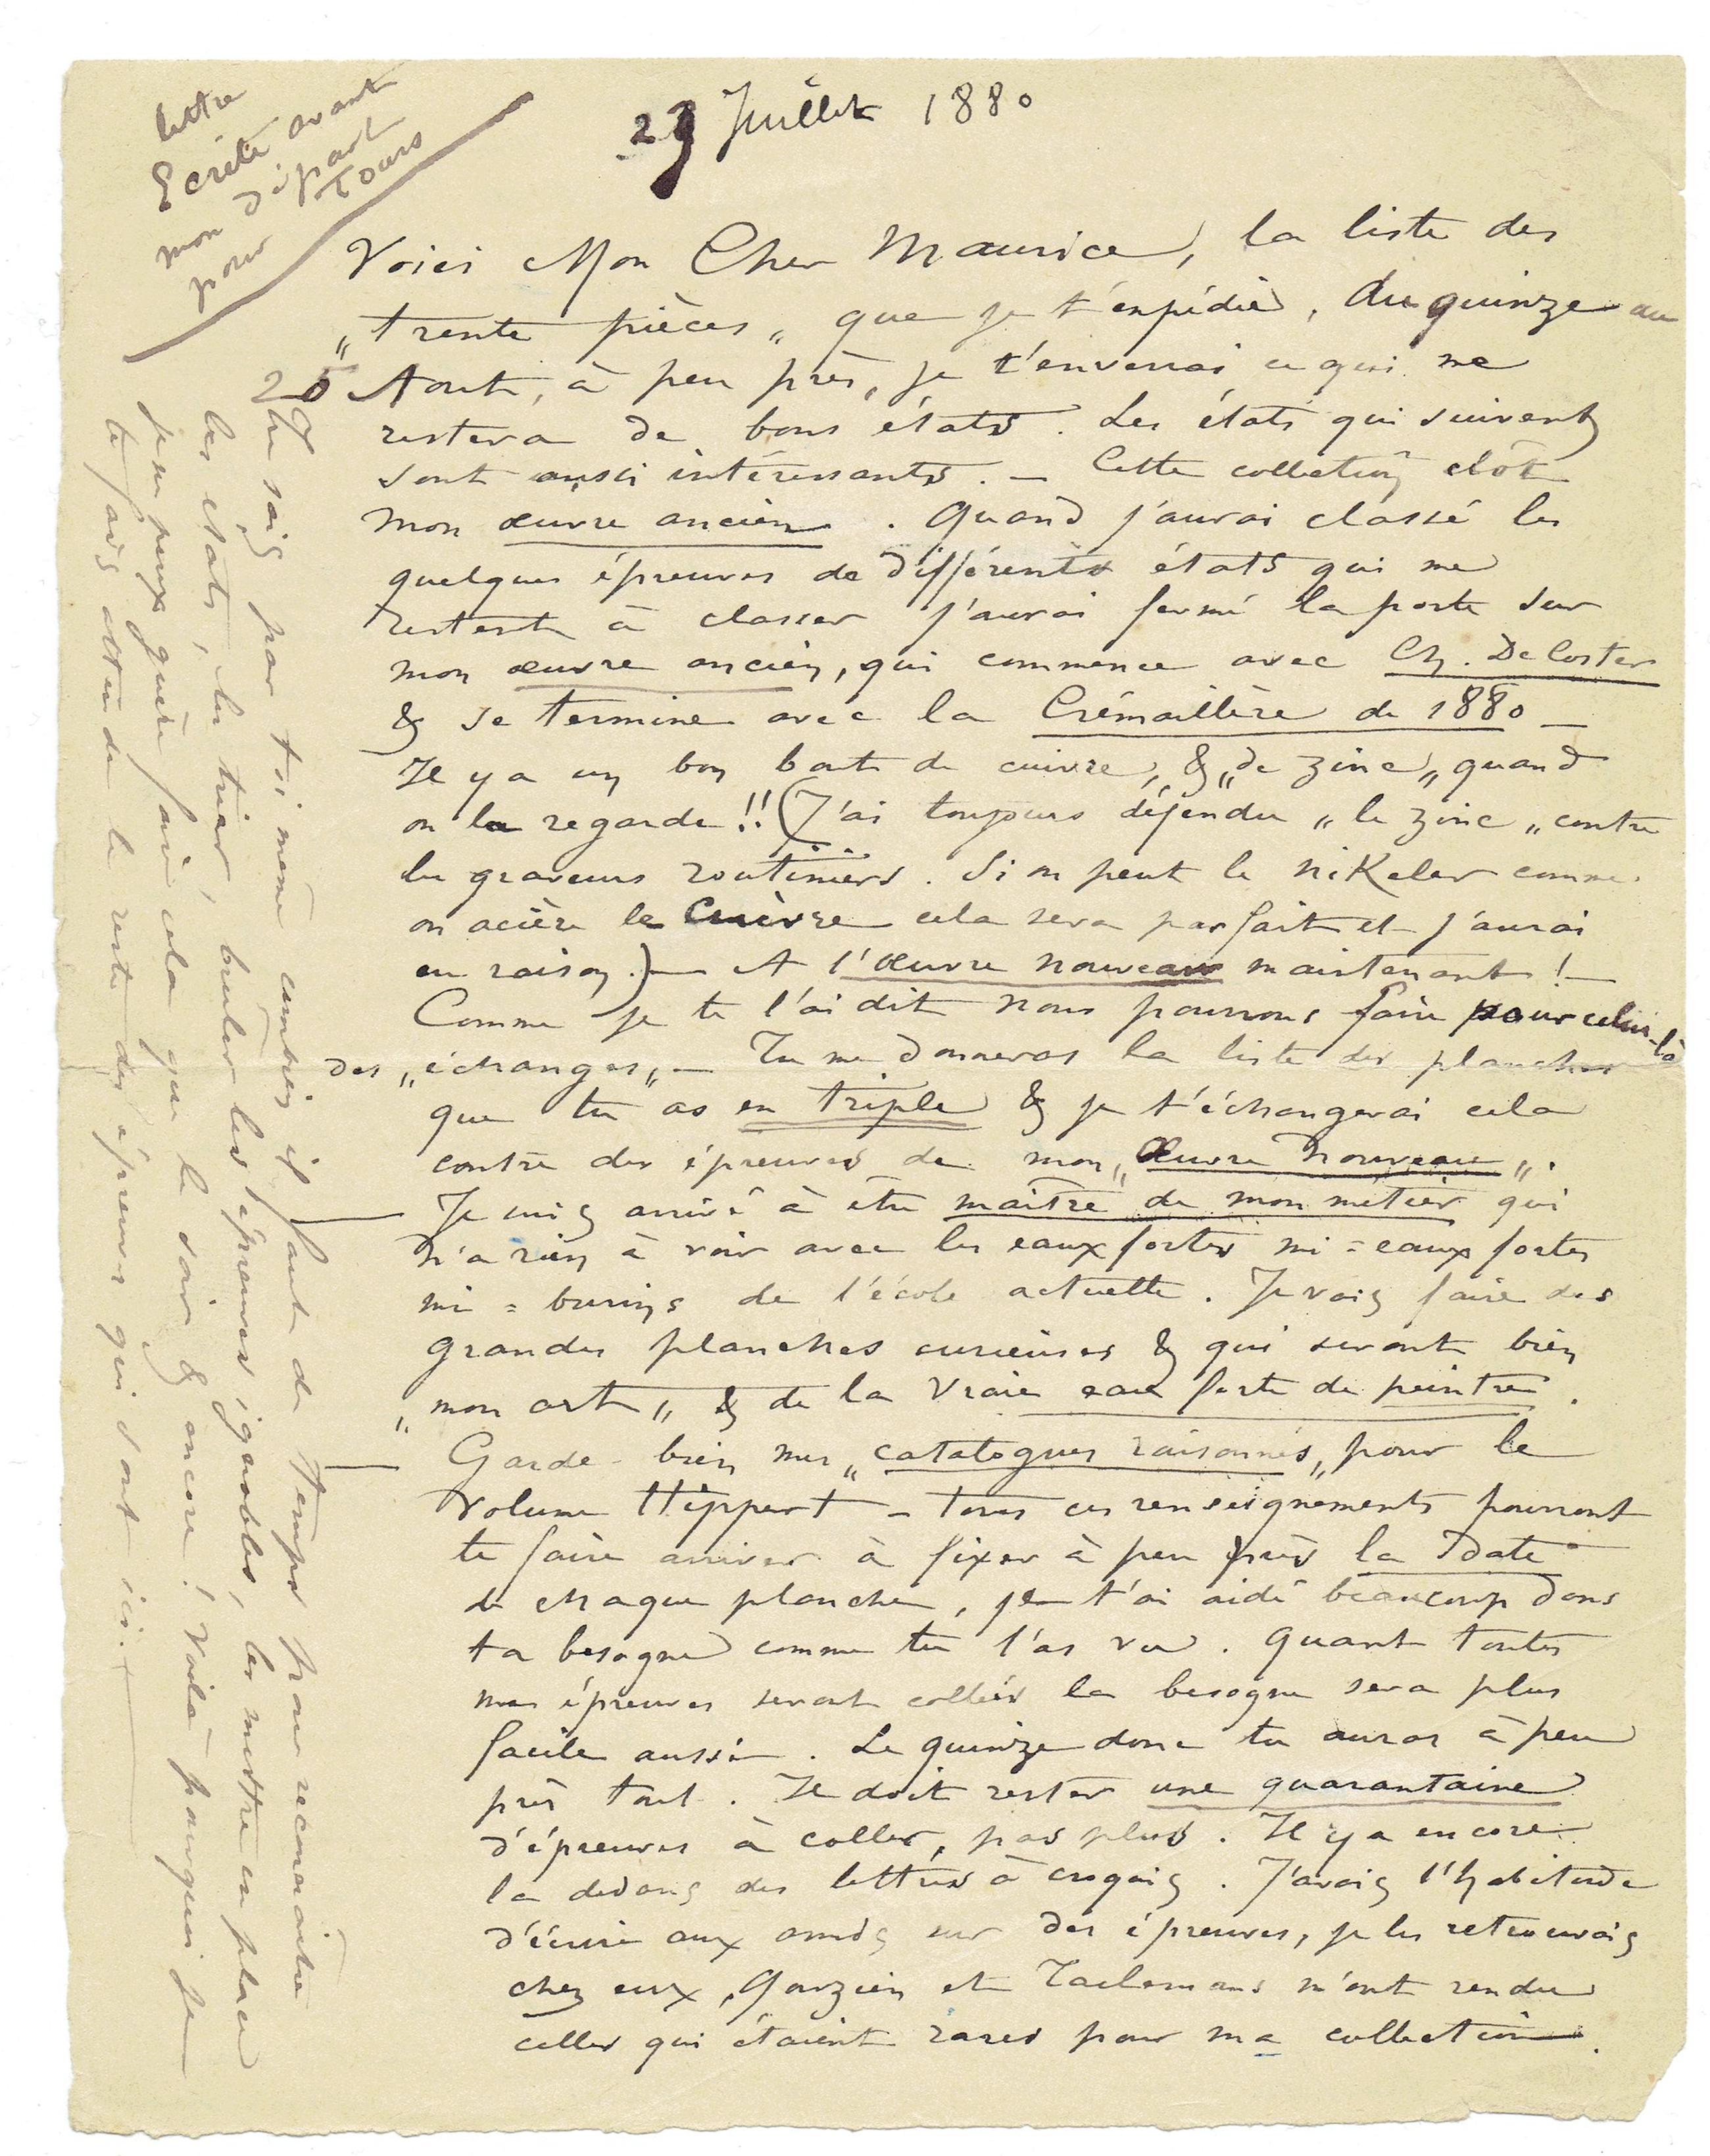 lettre
Ecrite avant
mon départ
pour Tours
29 Juillet 1880
Voici Mon Cher Maurice, la liste des
„trente pièces„ que je t'expédie, du quinze au
20 Aout, à peu près, je t'enverrai ce qui me
restera de bons états. Les états qui suivent
sont aussi intéressants. — Cette collection clôt
mon œuvre ancien. Quand j'aurai classé les
quelques épreuves de différents états qui me
restent à classer j'aurai fermé la porte sur
mon œuvre ancien, qui commence avec Ch. DeCoster
& se termine avec la Crémaillère de 1880 —
Il y a un bon bout de cuivre, & „de zinc„ quand
on la regarde!! (J'ai toujours défendu „le zinc„ contre
les graveurs routiniers. Si on peut le niKeler comme
on acière le Cuivre cela sera parfait et j'aurai
eu raison.) — A l'Œuvre nouveau maintenant! —
Comme je te l'ai dit nous pourrons faire pour celui-là
des „échanges„ — Tu me donneras la liste des planches
que tu as en triple & je t'échangerai cela
contre des épreuves de mon „Œuvre Nouveau„.
— Je suis arrivé à être maître de mon métier qui
n'a rien à voir avec les eaux fortes mi=eaux fortes
mi=burins de l'école actuelle. Je vais faire des
grandes planches curieuses & qui seront bien
„mon art„ & de la Vraie eau forte de peintre.
— Garde bien mes „catalogues raisonnés„ pour le
Volume Hippert — tous ces renseignements pourront
te faire arriver à fixer à peu près la Date
de chaque planche, je t'ai aidé beaucoup dans
ta besogne comme tu l'as vu. Quant toutes
mes épreuves seront collées la besogne sera plus
facile aussi. Le quinze donc tu auras à peu
près tout. Il doit rester une quarantaine
d'épreuves à coller, pas plus. Il y a encore
la dedans des lettres à croquis. J'avais l'habitude
d'écrire aux amis sur des épreuves, je les retrouvais
chez eux, Garzien et Taelemans m'ont rendu
celles qui étaient rares pour ma collection.
Tu sais par toi même combien il faut de temps pour reconnaître
les états, les trier, bruler les épreuves ignobles, les mettre en place
je ne peux guère faire cela que le soir & encore! Voilà pourquoi je
te fais attendre le reste des épreuves qui sont ici. —